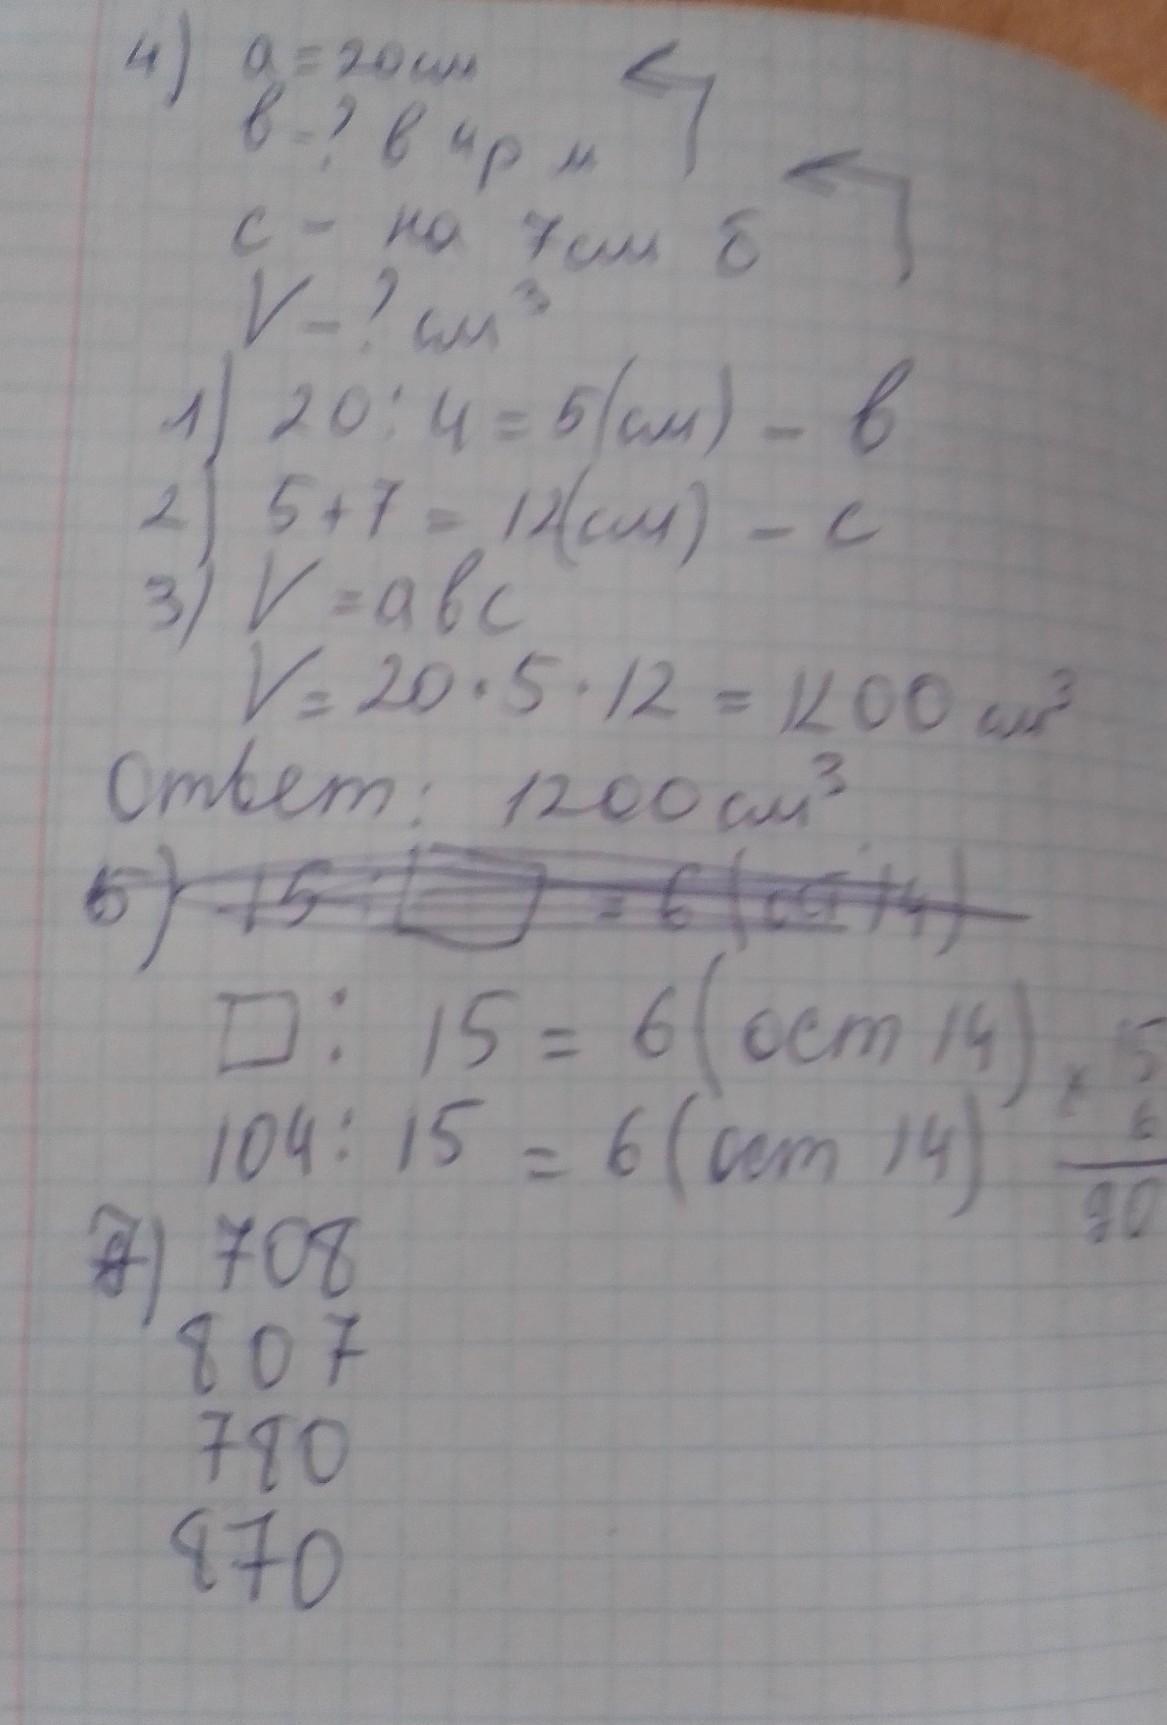 4) a = 20 см
в - ? в 4 р м
с - на 7 см б
V - ? см³
1) 20 : 4 = 5 (см) - в
2) 5 + 7 = 12 (см) - с
3) V = авс
V = 20 · 5 · 12 = 1200 см³
Ответ: 1200 см³
5) 15 = 6 (ост 14)
□ : 15 = 6 (ост 14)
104 : 15 = 6 (ост 14)
× 15
6
90
7) 708
807
780
870